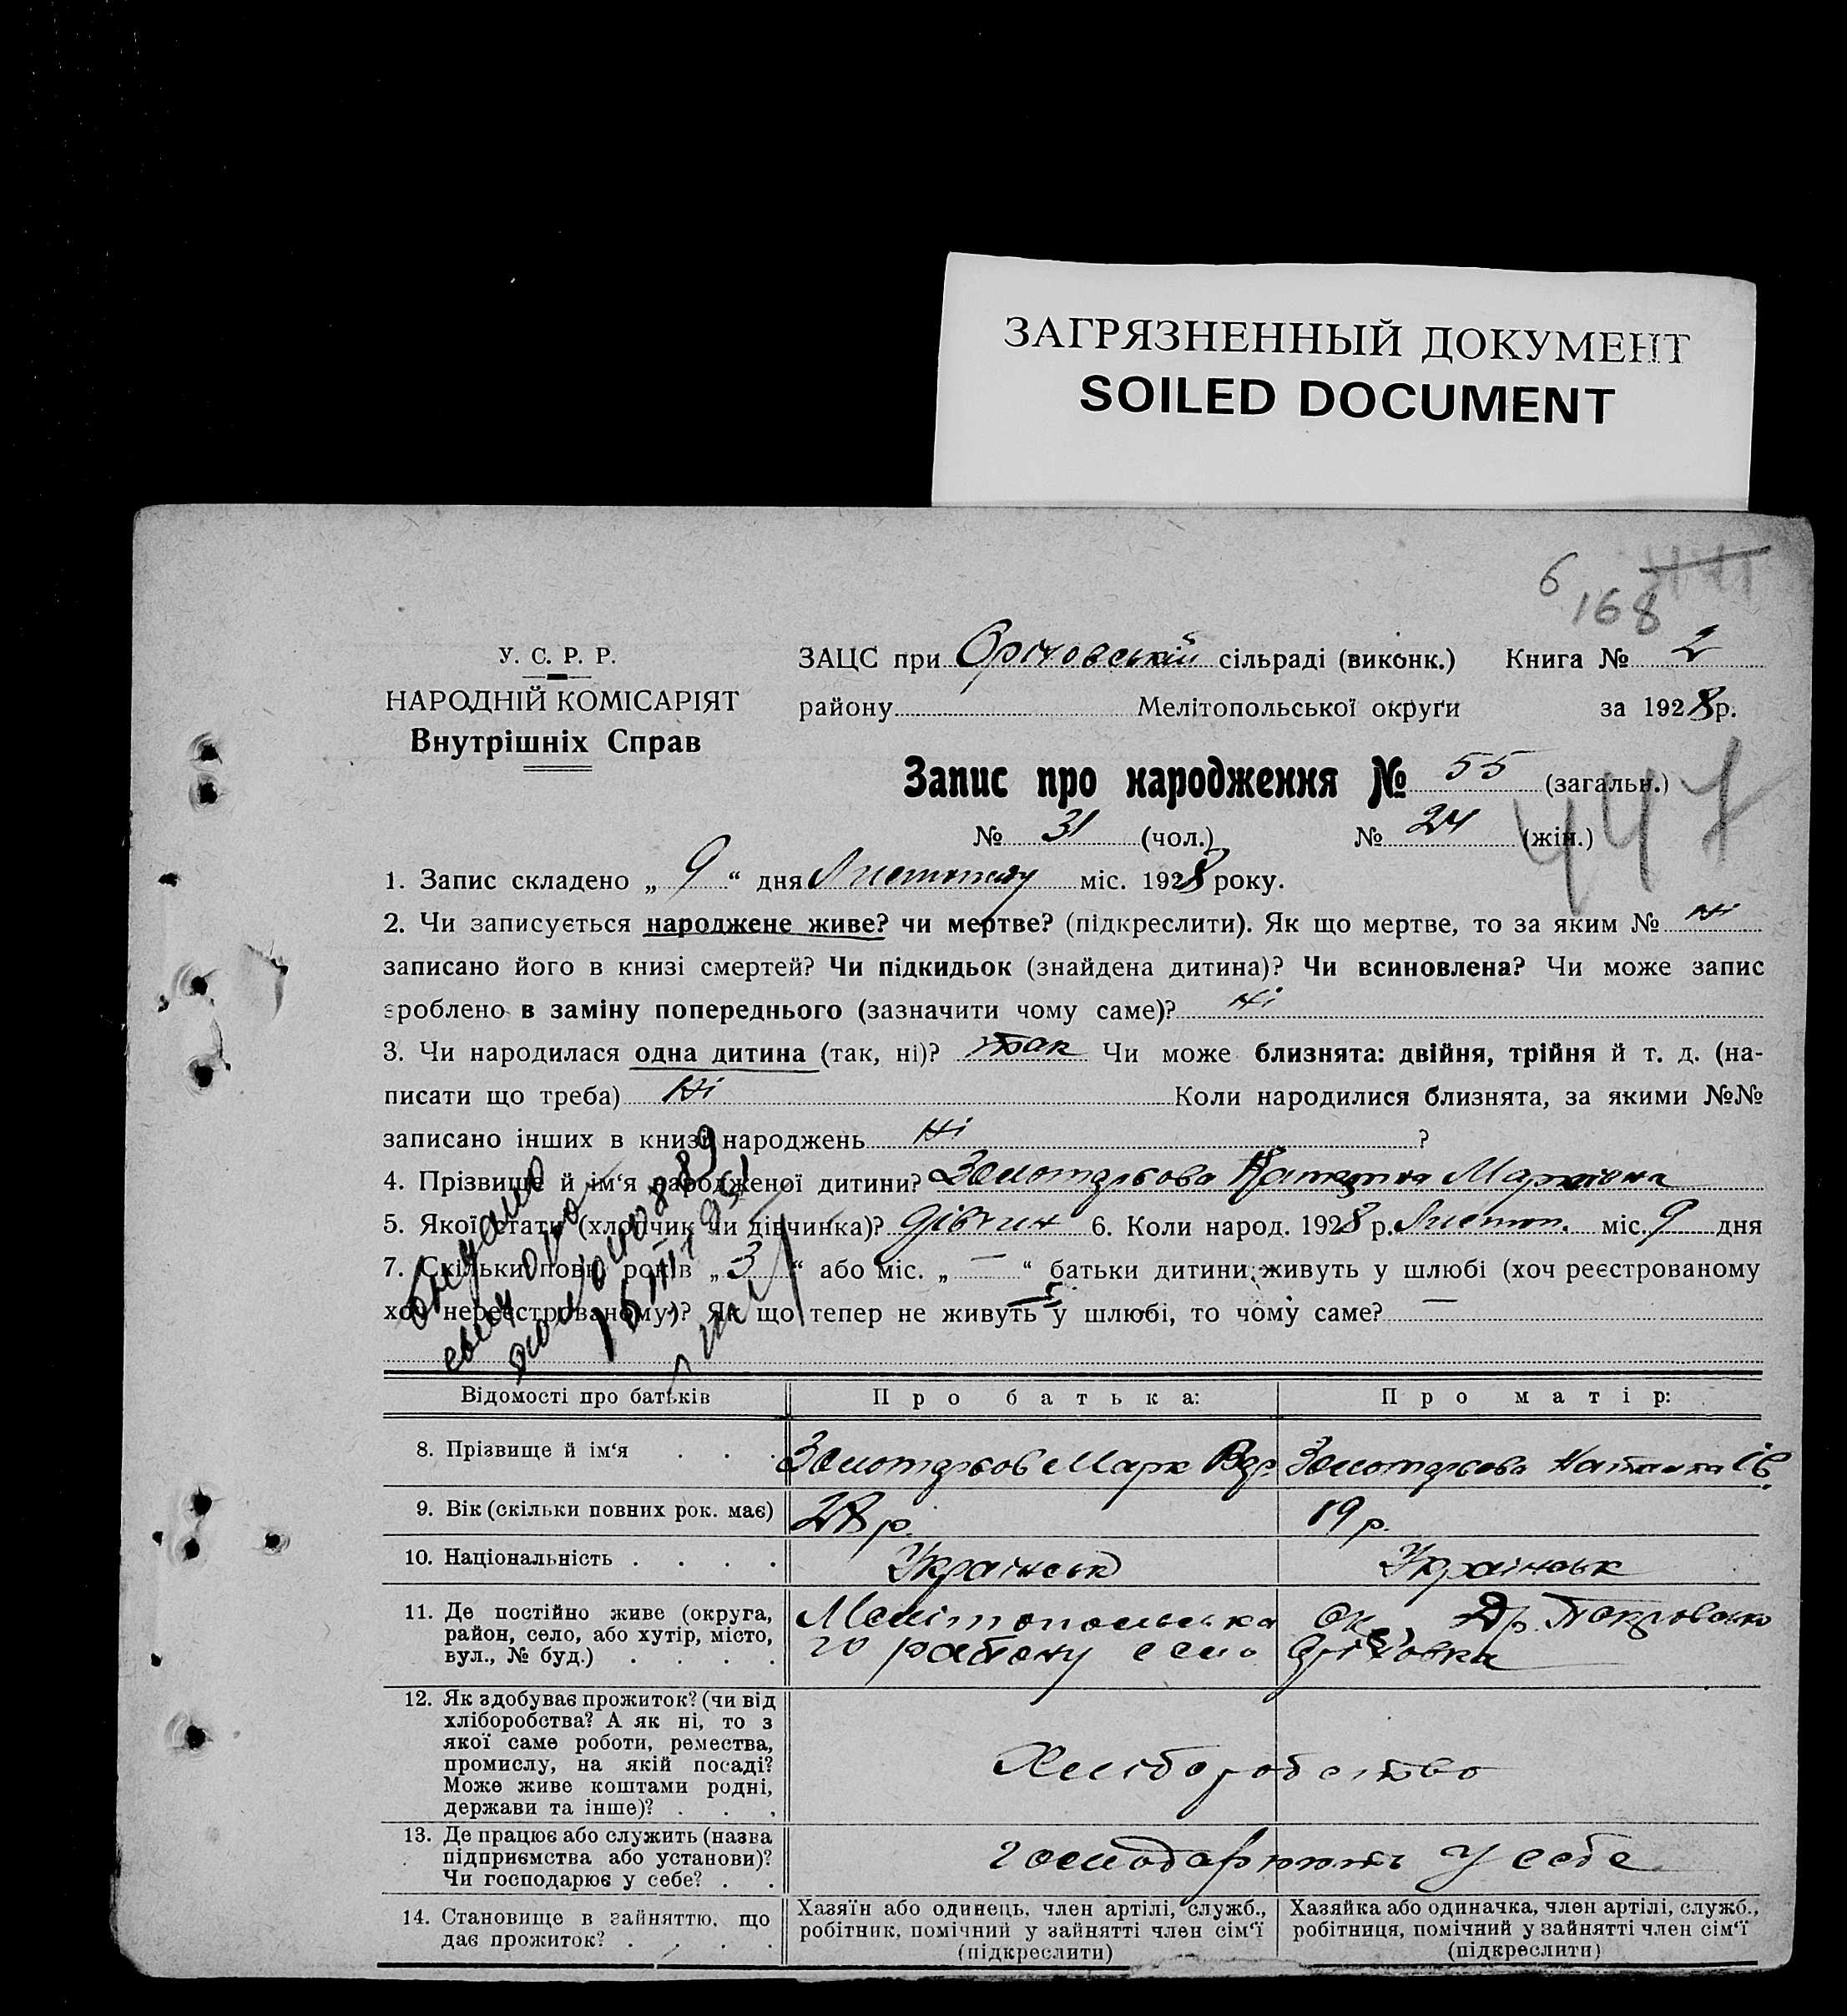 ЗАГРЯЗНЕННЫЙ ДОКУМЕНТ
SOILED DOCUMENT
6
168
У. С. Р. Р.
НАРОДНІЙ КОМІСАРІЯТ
Внутрішніх Справ
ЗАЦС при Оріховській сільраді (виконк.) Книга № 2
району Мелітопольської округи за 1928 р.
Запис про народження № 55 (загальн.)
№ 31 (чол.) № 24 (жін.)
447
1. Запис складено „ 9 “ дня Листопаду міс. 1928 року.
2. Чи записується народжене живе? чи мертве? (підкреслити). Як що мертве, то за яким № ні
записано його в книзі смертей? Чи підкидьок (знайдена дитина)? Чи всиновлена? Чи може запис
зроблено в заміну попереднього (зазначити чому саме)? ні
3. Чи народилася одна дитина (так, ні)? так Чи може близнята: двійня, трійня й т. д. (на-
писати що треба) Ні Коли народилися близнята, за якими №№
записано інших в книзі народжень Ні ?
4. Прізвище й ім‘я народженої дитини? Золотарьова
5. Якої стати (хлопчик чи дівчинка)? дівчин 6. Коли народ. 1928 р. Листоп. міс. 9 дня
7. Скільки повн. років „ 3 “ або міс. „ — “ батьки дитини живуть у шлюбі (хоч реєстрованому
хоч нереєстрованому)? Як що тепер не живуть у шлюбі, то чому саме? —
Відомості про батьків Про батька: Про матір:
8. Прізвище й ім‘я . . . Золотарьов Марк Золотарьова
9. Вік (скільки повних рок. має) 28 р. 19 р.
10. Національність . . . . Українськ Українськ
11. Де постійно живе (округа,
район, село, або хутір, місто,
вул., № буд.) . . . .
Мелітопольська ок
го району село
12. Як здобуває прожиток? (чи від
хліборобства? А як ні, то з
якої саме роботи, ремества,
промислу, на якій посаді?
Може живе коштами родні,
держави та інше)? . . .
Хліборобство
13. Де працює або служить (назва
підприємства або установи)?
Чи господарює у себе? . .
господарюють у себе
14. Становище в зайняттю, що
дає прожиток? . . . .
Хазяїн або одинець, член артілі, служб.,
робітник, помічний у зайнятті член сім‘ї
(підкреслити)
Хазяйка або одиначка, член артілі, служб.,
робітниця, помічний у зайнятті член сім‘ї
(підкреслити)